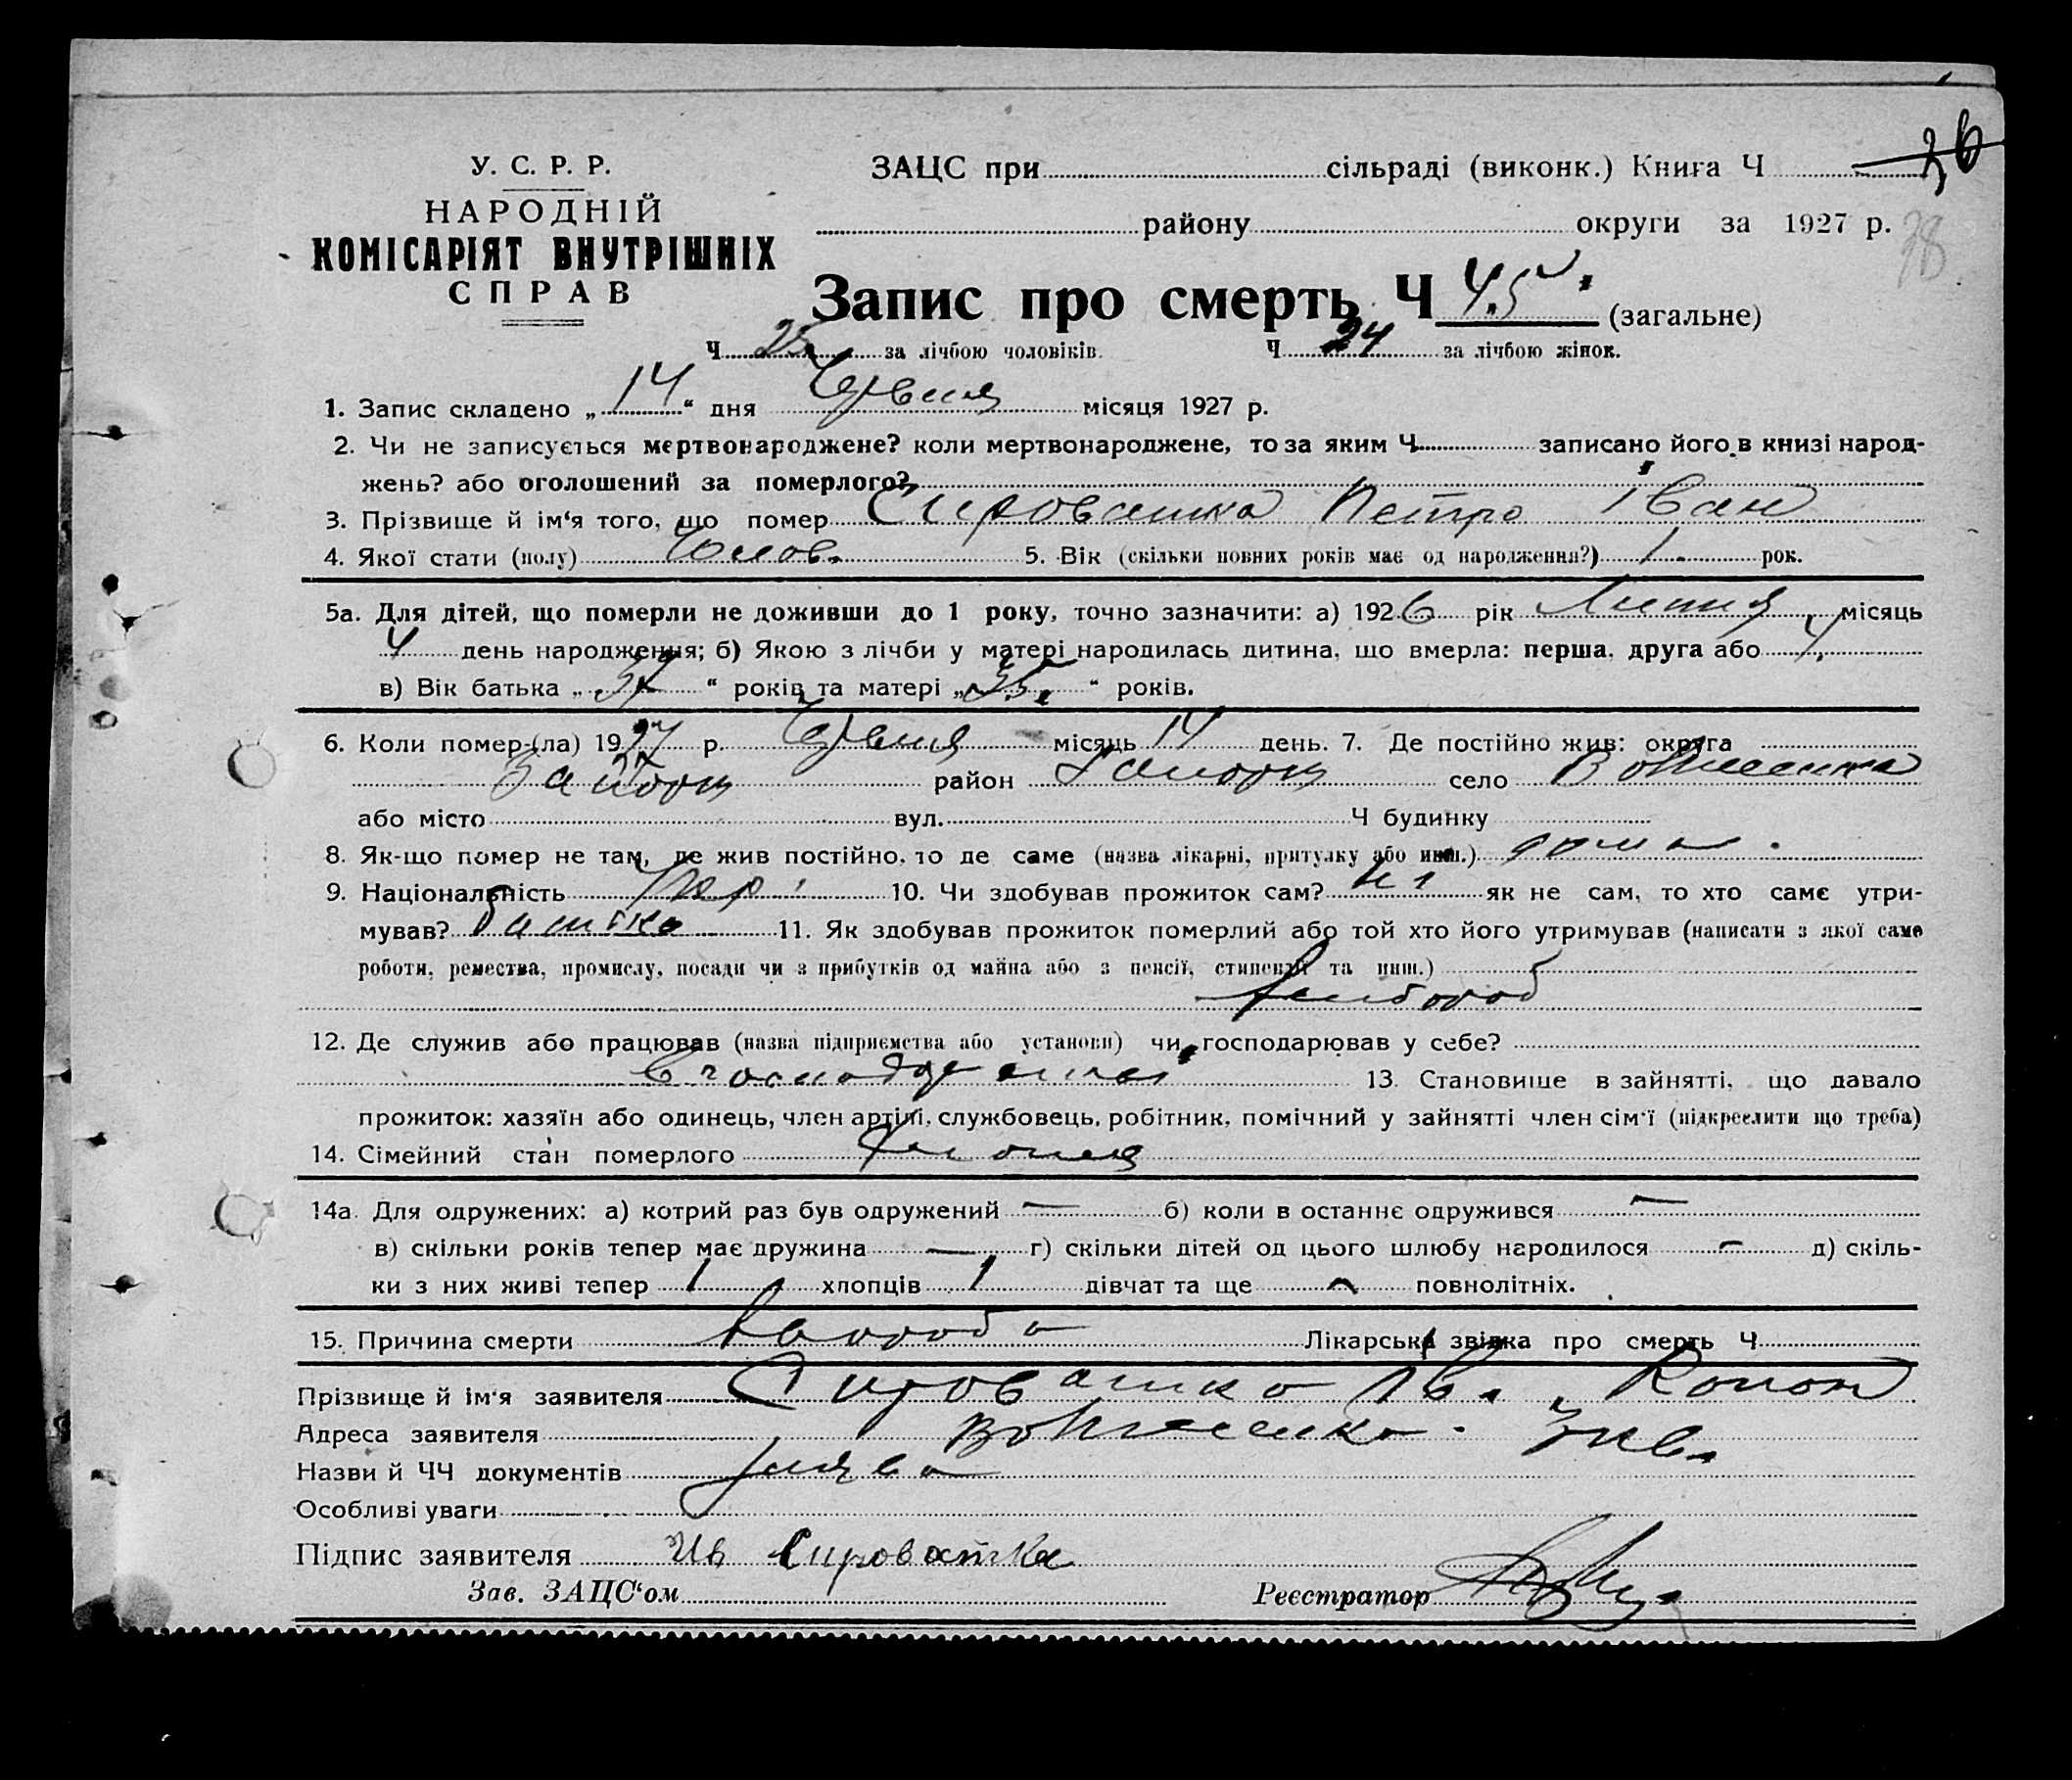 36
У. С. Р. Р. ЗАЦС при сільраді (виконк.) Книга Ч
НАРОДНІЙ району округи за 1927 р. 38
КОМІСАРІЯТ ВНУТРІШНІХ
СПРАВ
Запис про смерть Ч 45 (загальне)
Ч за лічбою чоловіків. Ч 24 за лічбою жінок.
1. Запис складено „ 14 “ дня Червня місяця 1927 р.
2. Чи не записується мертвонароджене? коли мертвонароджене, то за яким Ч записано його в книзі народ-
жень? або оголошений за померлого?
3. Прізвище й ім‘я того, що помер Сироватка Петро Іван
4. Якої стати (полу) Чолов. 5. Вік (скільки повних років має од народження?) 1. рок.
5а. Для дітей, що померли не доживши до 1 року, точно зазначити: а) 1926 рік Липня місяць
4 день народження; б) Якою з лічби у матері народилась дитина, що вмерла: перша, друга або 4.
в) Вік батька „ 37 “ років та матері „ 35 “ років.
6. Коли помер-(ла) 1927 р. Червня місяць 14 день. 7. Де постійно жив: округа
Запорж район Запорж село Вознесенка
або місто вул. Ч будинку
8. Як-що помер не там, де жив постійно, то де саме (назва лікарні, притулку або инш.) дома.
9. Національність Укр. 10. Чи здобував прожиток сам? ні як не сам, то хто саме утри-
мував? батько 11. Як здобував прожиток померлий або той хто його утримував (написати з якої саме
роботи, ремества, промислу, посади чи з прибутків од майна або з пенсії, стипендії та инш.)
Хлібороб
12. Де служив або працював (назва підприємства або установи) чи господарював у себе?
13. Становище в зайнятті, що давало
прожиток: хазяїн або одинець, член артілі, службовець, робітник, помічний у зайнятті член сім‘ї (підкреслити що треба)
14. Сімейний стан померлого
14а. Для одружених: а) котрий раз був одружений — б) коли в останнє одружився —
в) скільки років тепер має дружина — г) скільки дітей од цього шлюбу народилося — д) скіль-
ки з них живі тепер 1 хлопців 1 дівчат та ще повнолітніх.
15. Причина смерти Хвороба Лікарська звістка про смерть Ч
Прізвище й ім‘я заявителя Сироватко Ів. Конон
Адреса заявителя Вознесенка.
Назви й ЧЧ документів Заява
Особливі уваги
Підпис заявителя Ив Сироватка
Зав. ЗАЦС‘ом Реєстратор